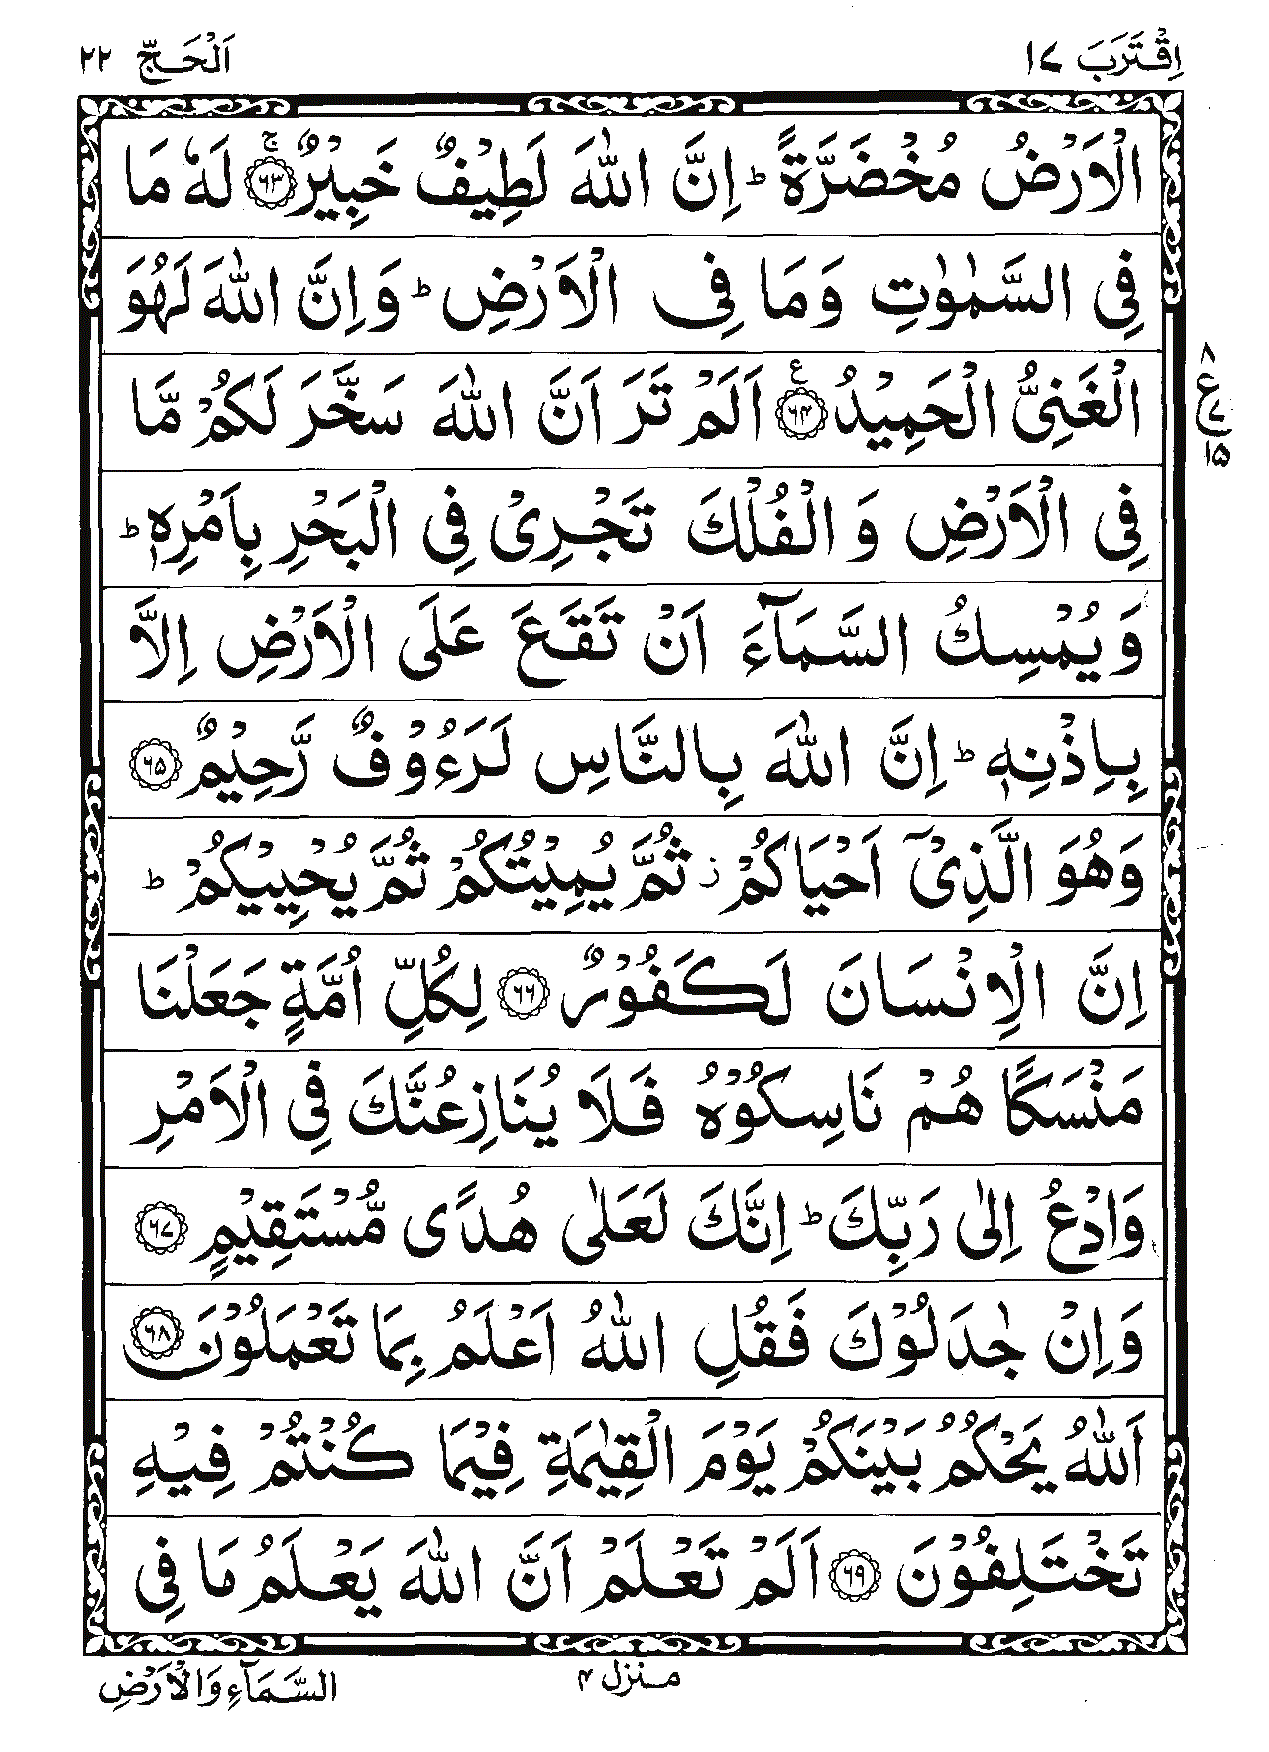 اِقْتَرَبَ ١٧
اَلْحَجّ ٢٢
الْاَرْضُ مُخْضَرَّةً ؕ اِنَّ اللّٰهَ لَطِيْفٌ خَبِيْرٌ ۚ﴿۶۳﴾ لَهٗ مَا
فِی السَّمٰوٰتِ وَمَا فِی الْاَرْضِ ؕ وَاِنَّ اللّٰهَ لَهُوَ
الْغَنِیُّ الْحَمِيْدُ ﴿۶۴﴾ ع اَلَمْ تَرَ اَنَّ اللّٰهَ سَخَّرَ لَكُمْ مَّا
٨ ع ٧ ١٥
فِی الْاَرْضِ وَ الْفُلْكَ تَجْرِیْ فِی الْبَحْرِ بِاَمْرِهٖ ؕ
وَ يُمْسِكُ السَّمَآءَ اَنْ تَقَعَ عَلَی الْاَرْضِ اِلَّا
بِاِذْنِهٖ ؕ اِنَّ اللّٰهَ بِالنَّاسِ لَرَءُوْفٌ رَّحِيْمٌ ﴿۶۵﴾
وَهُوَ الَّذِیْۤ اَحْيَاكُمْ ز ثُمَّ يُمِيْتُكُمْ ثُمَّ يُحْيِيْكُمْ ؕ
اِنَّ الْاِنْسَانَ لَكَفُوْرٌ ﴿۶۶﴾ لِكُلِّ اُمَّةٍ جَعَلْنَا
مَنْسَكًا هُمْ نَاسِكُوْهُ فَلَا يُنَازِعُنَّكَ فِی الْاَمْرِ
وَادْعُ اِلٰی رَبِّكَ ؕ اِنَّكَ لَعَلٰی هُدًی مُّسْتَقِيْمٍ ﴿۶۷﴾
وَاِنْ جٰدَلُوْكَ فَقُلِ اللّٰهُ اَعْلَمُ بِمَا تَعْمَلُوْنَ ﴿۶۸﴾
اَللّٰهُ يَحْكُمُ بَيْنَكُمْ يَوْمَ الْقِيٰمَةِ فِيْمَا كُنْتُمْ فِيْهِ
تَخْتَلِفُوْنَ ﴿۶۹﴾ اَلَمْ تَعْلَمْ اَنَّ اللّٰهَ يَعْلَمُ مَا فِی
منزل ۴
السَّمَآءِ وَالْاَرْضِ